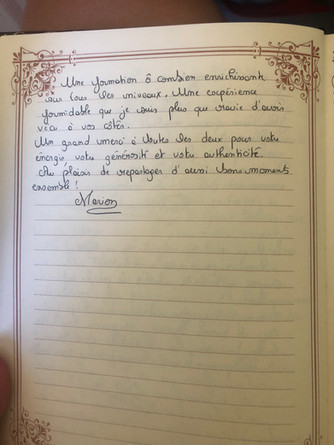 Une formation ô combien enrichissante
sur tous les niveaux. Une expérience
formidable que je suis plus que ravie d'avoir
vécu à vos côtés.
Un grand merci à toutes les deux pour votre
énergie, votre générosité et votre authenticité.
Au plaisir de repartager d'aussi bons moments
ensemble !
Marion